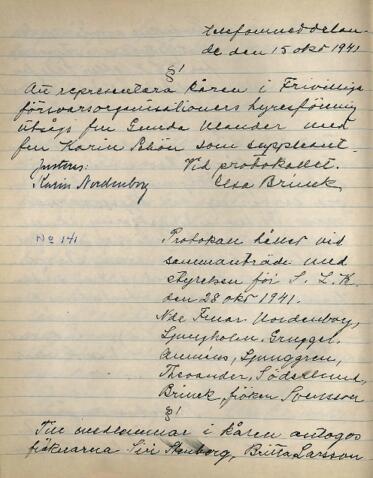 telefonmeddelan-
de den 15 okt 1941
§ 1
Att representera kåren i Frivilliga
försvarsorganisationers hyresförening
utsågs fru Gunda Ulander med
fru Karin Rhön som suppleant.
Justeras: Vid protokollet:
Karin Nordenborg Elsa Brinck
No 141
Protokoll hållet vid
sammanträde med
styrelsen för S. L. K.
den 28 okt 1941.
Nde Fruar Nordenborg,
Ljungholm, Gruggel,
Ljunggren,
Theander, Söderlund,
Brinck, fröken Svensson
§ 1
Till medlemmar i kåren antogos
fröknarna Siri Stenborg, Britta Larsson